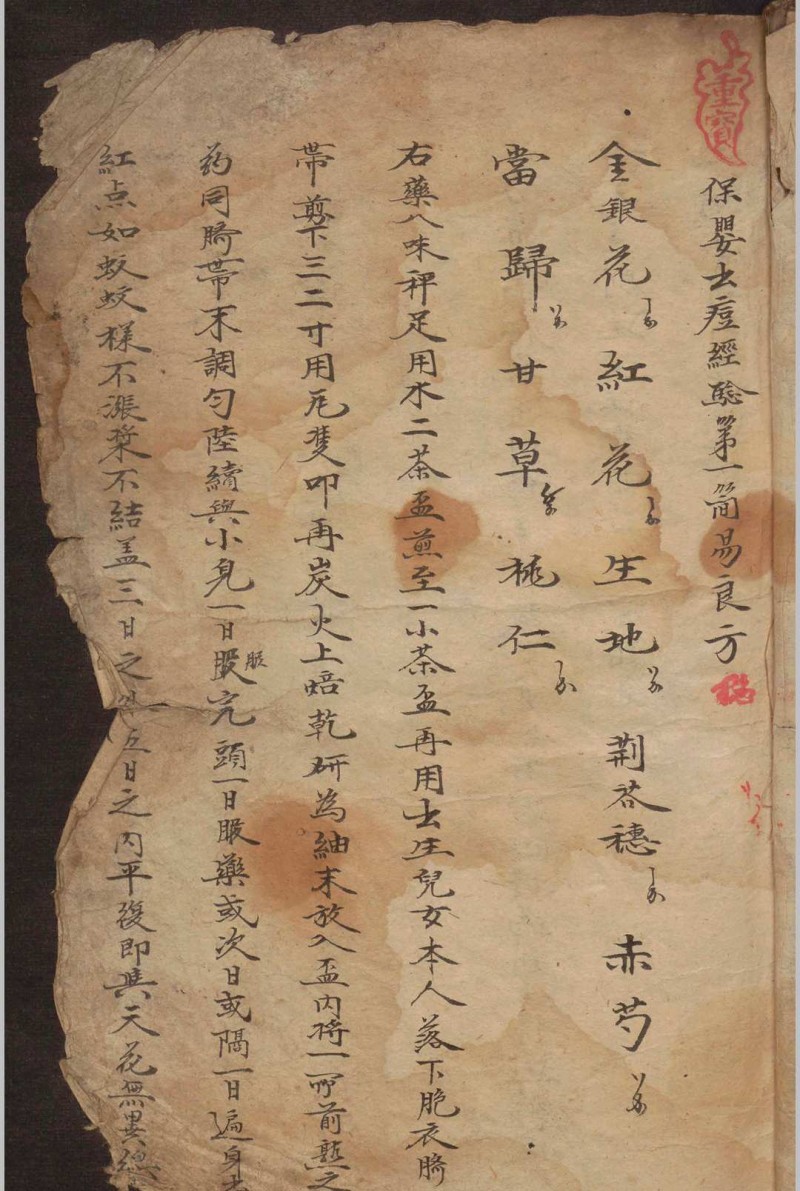 重寶
保嬰出痘經驗第一簡易良方
金銀花 紅花 生地 荆芥穗 赤芍
當歸 甘草 桃仁
右藥八味秤足用水二茶盃煎至一小茶盃再用出生兒女本人落下胞衣臍
帶剪下三二寸用瓦隻叩再炭火上焙乾研為細末放入盃內將前熬之
药同臍帶末調匀陸續與小兒一日服完頭一日服藥或次日或隔一日遍身
紅点如蚊蚊樣不漲漿不結盖三日之 五日之内平復即與天花無異